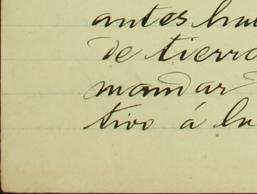 antes hu
de tierra
mandar
tivo á lu